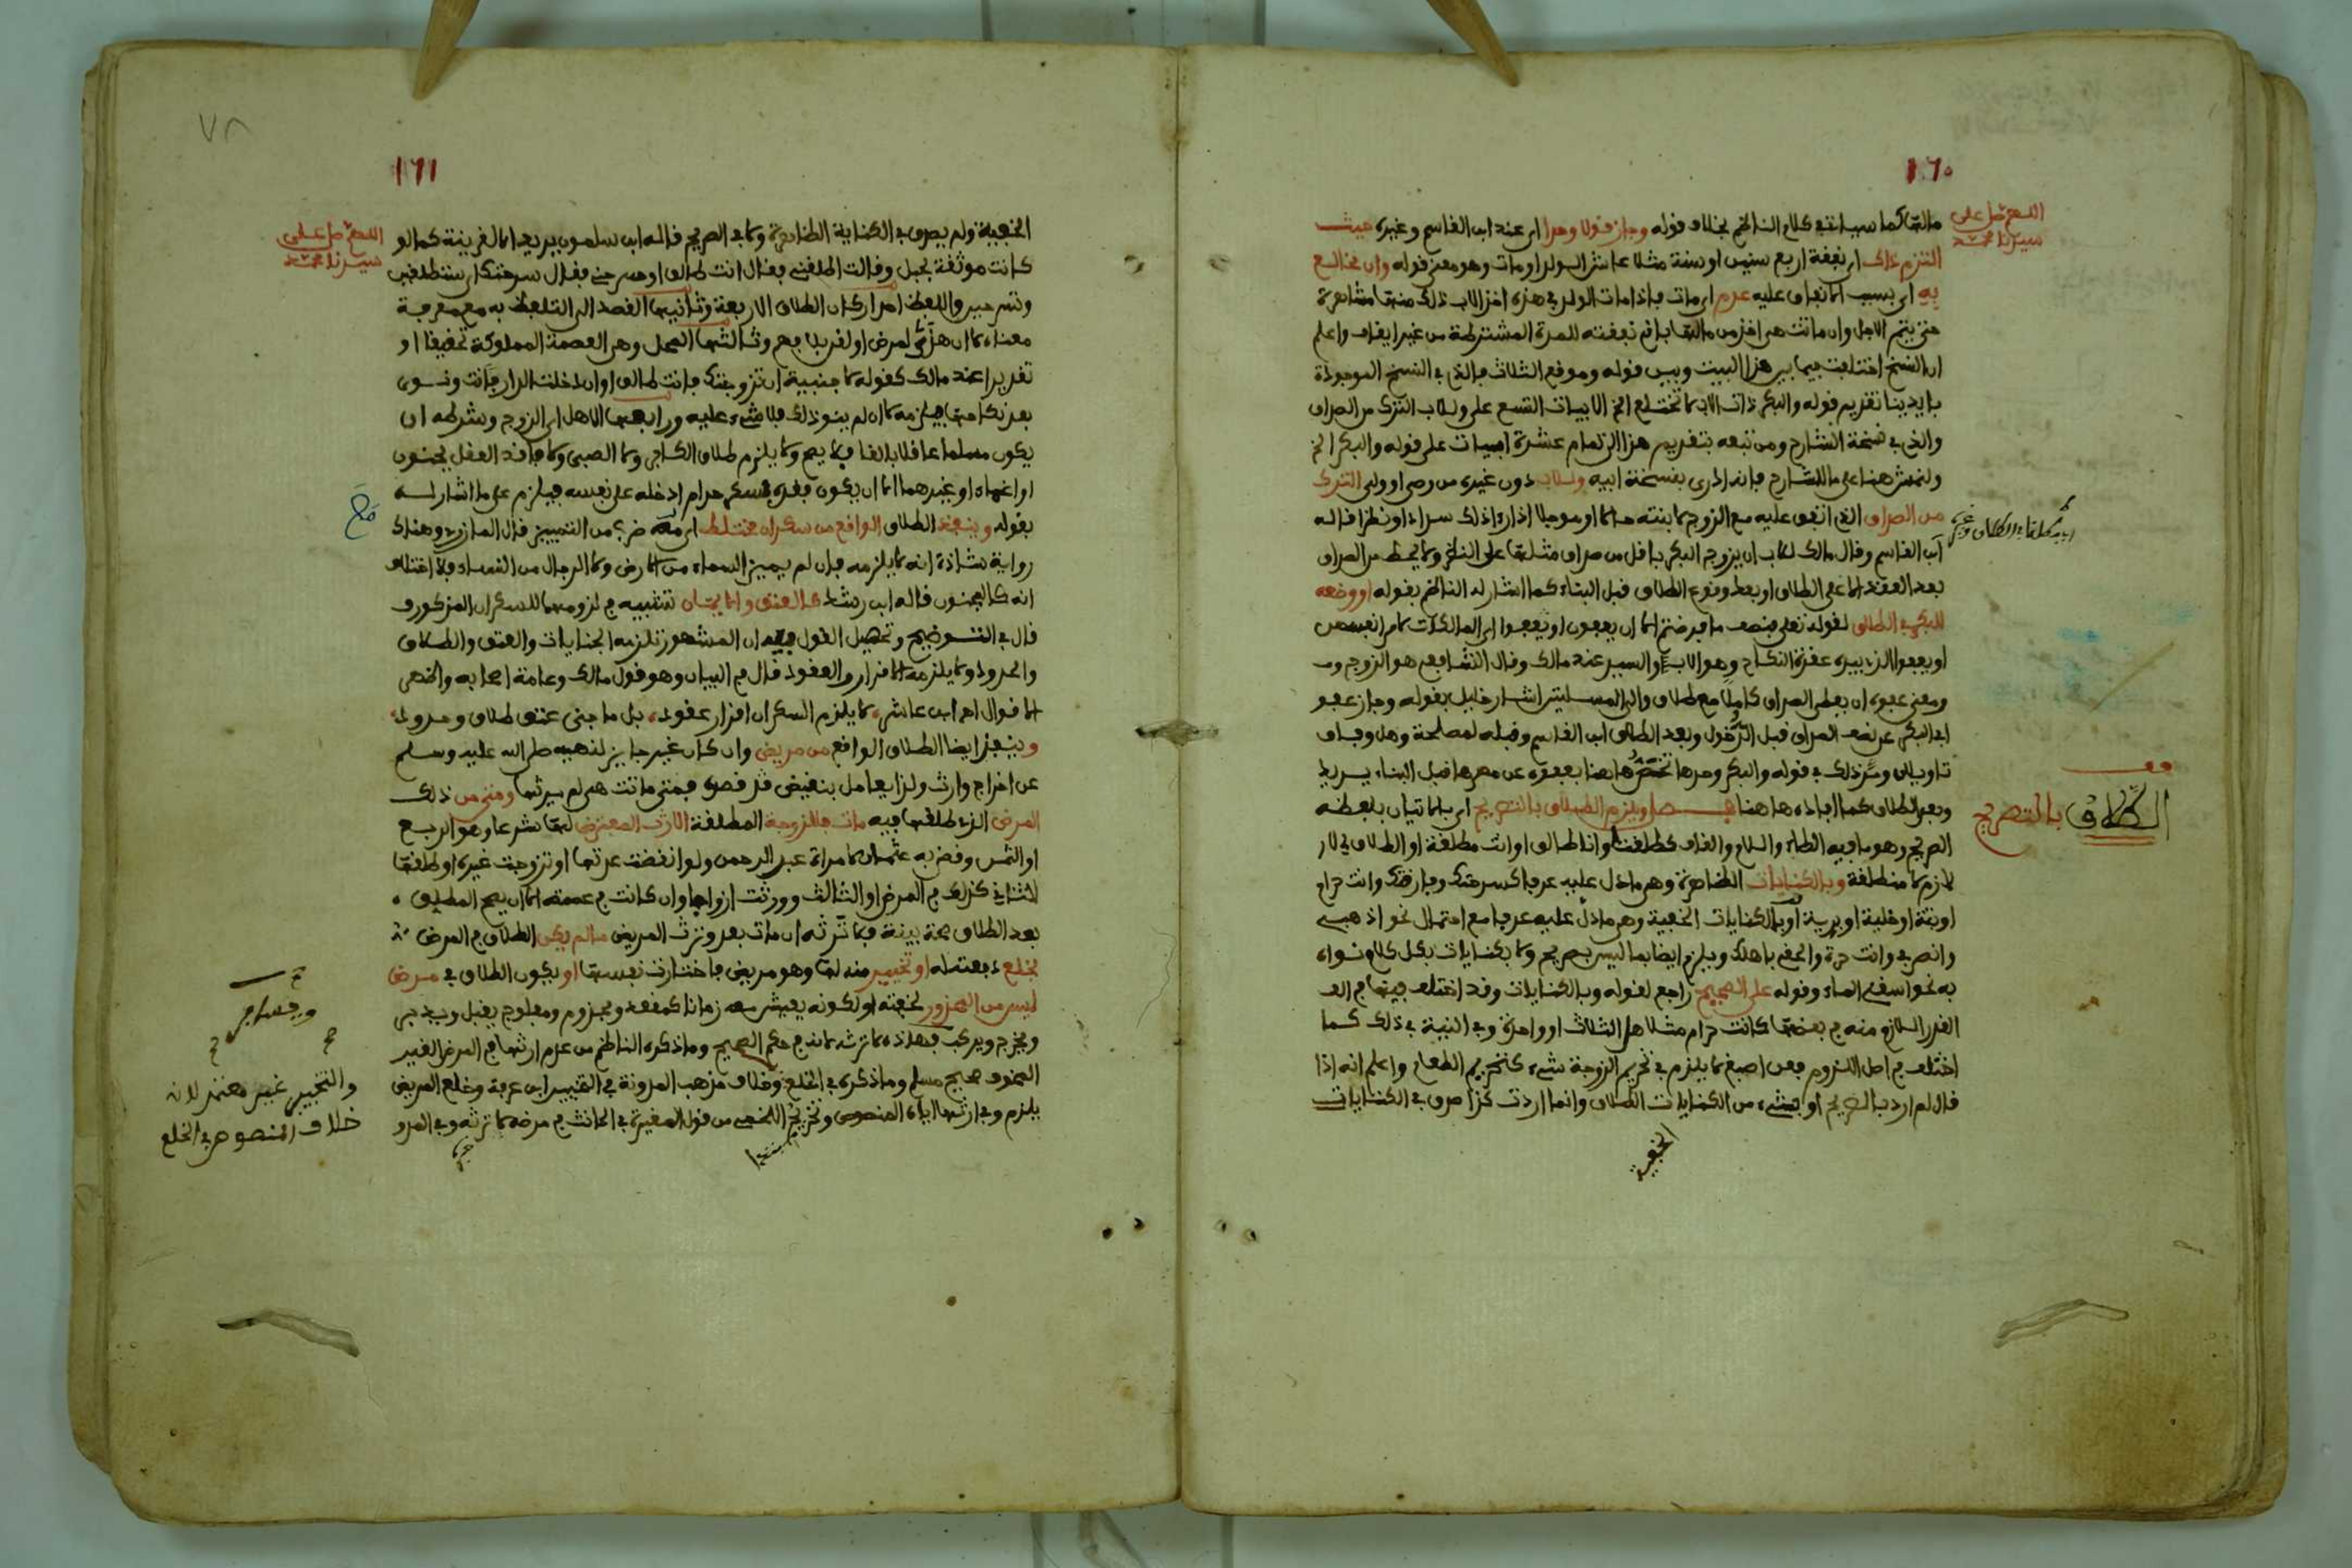 ١٦٠
اللهم صل على
سيدنا محمد
مالها كما سياتي في كلام الناظم بخلاف قوله وجاز قولا واحدا اى عند ابن القاسم وغيره حيث
التزم ذاك اى بنفقة اربع سنين او سنة مثلا عاش الولد او مات وهو معنى قوله وان تخالع
به اى بسبب الانفاق عليه عدم اى مات فاذا مات الولد في هذه اخذ الاب ذلك منها مشاهرة
حتى يتم الاجل وان ماتت هى اخذ من مالها باقى نفقته للمدة المشترطة من غير ايقاف واعلم
ان النسخ اختلفت فيما بين هذا البيت وبين قوله وموقع الثلاث فالذى في النسخ الموجودة
بايدينا تقديم قوله والبكر ذات الاب لا تختلع الخ الابيات التسع على وللاب الترك من الصداق
والذى في نسخة الشارح ومن تبعه بتقديم هذا الى تمام عشرة ابيات على قوله والبكر الخ
ولنمش هنا على ما للشارح فانه ادرى بنسخة ابيه وللاب دون غيره من وصى او ولى الترك
من الصداق الذى اتفق عليه مع الزوج لابنته حالا او موجلا اذا راى ذلك سدادا ونظرا قاله
ابن القاسم وقال مالك للاب ان يزوج البكر باقل من صداق مثلها على النظر ولا يحط من الصداق
بعد العقد الا على الطلاق او بعد وقوع الطلاق قبل البناء كما اشار له الناظم بقوله او وضعه
للبكر في الطلاق لقوله تعلى فنصف ما فرضتم الا ان يعفون او يعفوا اى المالكات لامر انفسهن
او يعفوا الذى بيده عقدة النكاح وهو الاب والسيد عند مالك وقال الشافعي هو الزوج
ومعنى عفوه ان يعطى الصداق كاملا مع طلاق والى المسئلتين اشار خليل بقوله وجاز عفو
ابى البكر عن نصف الصداق قبل الدخول وبعد الطلاق ابن القاسم وقبله لمصلحة وهل وفاق
تاويلان ومر ذلك في قوله والبكر وحدها تختص هاهنا بعفوه عن مهرها قبل البناء يريد
وبعد الطلاق كما افاده هاهنا فصل ويلزم الطلاق بالصريح اى بالاتيان بلفظه
الصريح وهو ما فيه الطاء واللام والقاف كطلقت وانا طالق او انت مطلقة او الطلاق لى لازم
لازم لا منطلقة وبالكنايات الظاهرة وهى ما دل عليه عرفا كسرحتك وفارقتك وانت حرام
او بتة او خلية او برية او بالكنايات الخفية وهى ما دل عليه عرفا مع احتمال نحو اذهبى
وانصرفى وانت حرة والحقى باهلك ويلزم ايضا بما ليس بصريح ولا بكنايات بكل كلام نواه
به نحو اسقنى الماء وقوله على الصحيح راجع لقوله وبالكنايات وقد اختلف فيها في
القدر اللازم منه في بعضها كانت حرام مثلا هل الثلاث او واحدة وفى النية في ذلك كما
اختلف في اصل اللزوم فعن اصبغ لا يلزم في تحريم الزوجة شىء كتحريم الطعام واعلم انه اذا
قال لم ارد بالصريح او بشىء من الكنايات الطلاق وانما اردت كذا صدق في الكنايات
الخفية
قف
الطلاق بالتصريح
٧٨
١٦١
اللهم صل على
سيدنا محمد
الخفية ولم يصدق في الكناية الظاهرة ولا في الصريح قاله ابن سلمون يريد الا لقرينة كما لو
كانت موثقة بحبل وقالت اطلقنى فقال انت طالق او سرحنى فقال سرحتك
معناه لا ان هذى لمرض او لقن بلا فهم وثالثها المحل وهى العصمة المملوكة تحقيقا او
تقديرا عند مالك كقوله لاجنبية ان تزوجتك فانت طالق او ان دخلت الدار فانت ونوى
بعد نكاحها فيلزمه لا ان لم ينو ذلك فلا شىء عليه ورابعها الاهل اى الزوج وشرطه ان
يكون مسلما عاقلا بالغا فلا يصح ولا يلزم طلاق الكافر ولا الصبى ولا فاقد العقل بجنون
او اغماء او غيرهما الا ان يكون فقده بسكر حرام ادخله على نفسه فيلزم على ما اشار له
بقوله وينفذ الطلاق الواقع من سكران مختلط اى معه ضرب من التمييز قال المازرى وهناك
رواية شاذة انه لا يلزمه فان لم يميز السماء من الارض ولا الرجال من النساء فلا اختلاف
انه كالمجنون قاله ابن رشد كالعتق والايمان تشبيه في لزومهما للسكران المذكور
قال في التوضيح وتحصيل القول فيه ان المشهور تلزمه الجنايات والعتق والطلاق
والحدود ولا يلزمه الاقرار والعقود قال في البيان وهو قول مالك وعامة اصحابه واظهر
الاقوال اهـ ابن عاشر لا يلزم السكران اقرار عقود، بل ما جنى عتق طلاق وحدود
وينفذ ايضا الطلاق الواقع من مريض وان كان غير جايز لنهيه صلى الله عليه وسلم
عن اخراج وارث ولذا يعامل بنقيض قصده فمتى ماتت هى لم يرثها ومتى من ذلك
المرض الذى طلقها فيه مات فللزوجة المطلقة الارث المفترض لها شرعا وهو الربع
او الثمن وقضى به عثمان لامراة عبد الرحمن ولو انقضت عدتها او تزوجت غيره او طلقها
الثانى كذلك في المرض او الثالث وورثت ازواجا وان كانت في عصمة الا ان يصح المطلق
بعد الطلاق صحة بينة فلا ترثه ان مات بعد وترث المريض ما لم يكن الطلاق في المرض
بخلع دفعته له او تخيير منه لها وهو مريض فاختارت نفسها او يكون الطلاق في مرض
ليس من المخوف لخفته او لكونه يعيش معه زمانا كمقعد ومجذوم ومفلوج يقبل ويدبر
ويخرج ويركب فهذه لا ترث لانه في حكم الصحيح وما ذكره الناظم من عدم ارثها في المرض الغير
المخوف صحيح مسلم وما ذكره في الخلع خلاف مذهب المدونة في التخيير ابن عرفة وخلع المريض
يلزم وفى ارثها اياه المنصوص وتخريج اللخمى من قول المغيرة في الحانث في مرضه لا ترثه
والتخيير غير معتمد لانه
خلاف المنصوص في الخلع